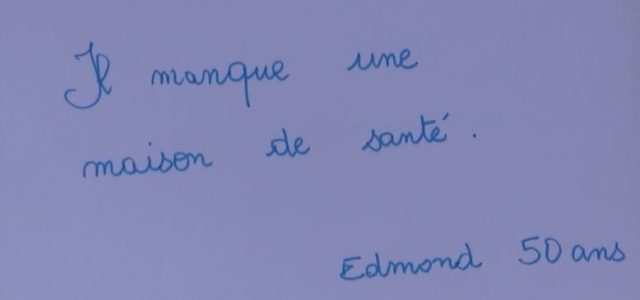 Il manque une
maison de santé.
Edmond 50 ans